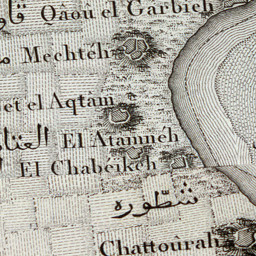 Qâoù el Gharbieh
Mechtéh
et el Aqtâm
El Atamnéh
El Chabéïkeh
شطّوره
Chattoûrah